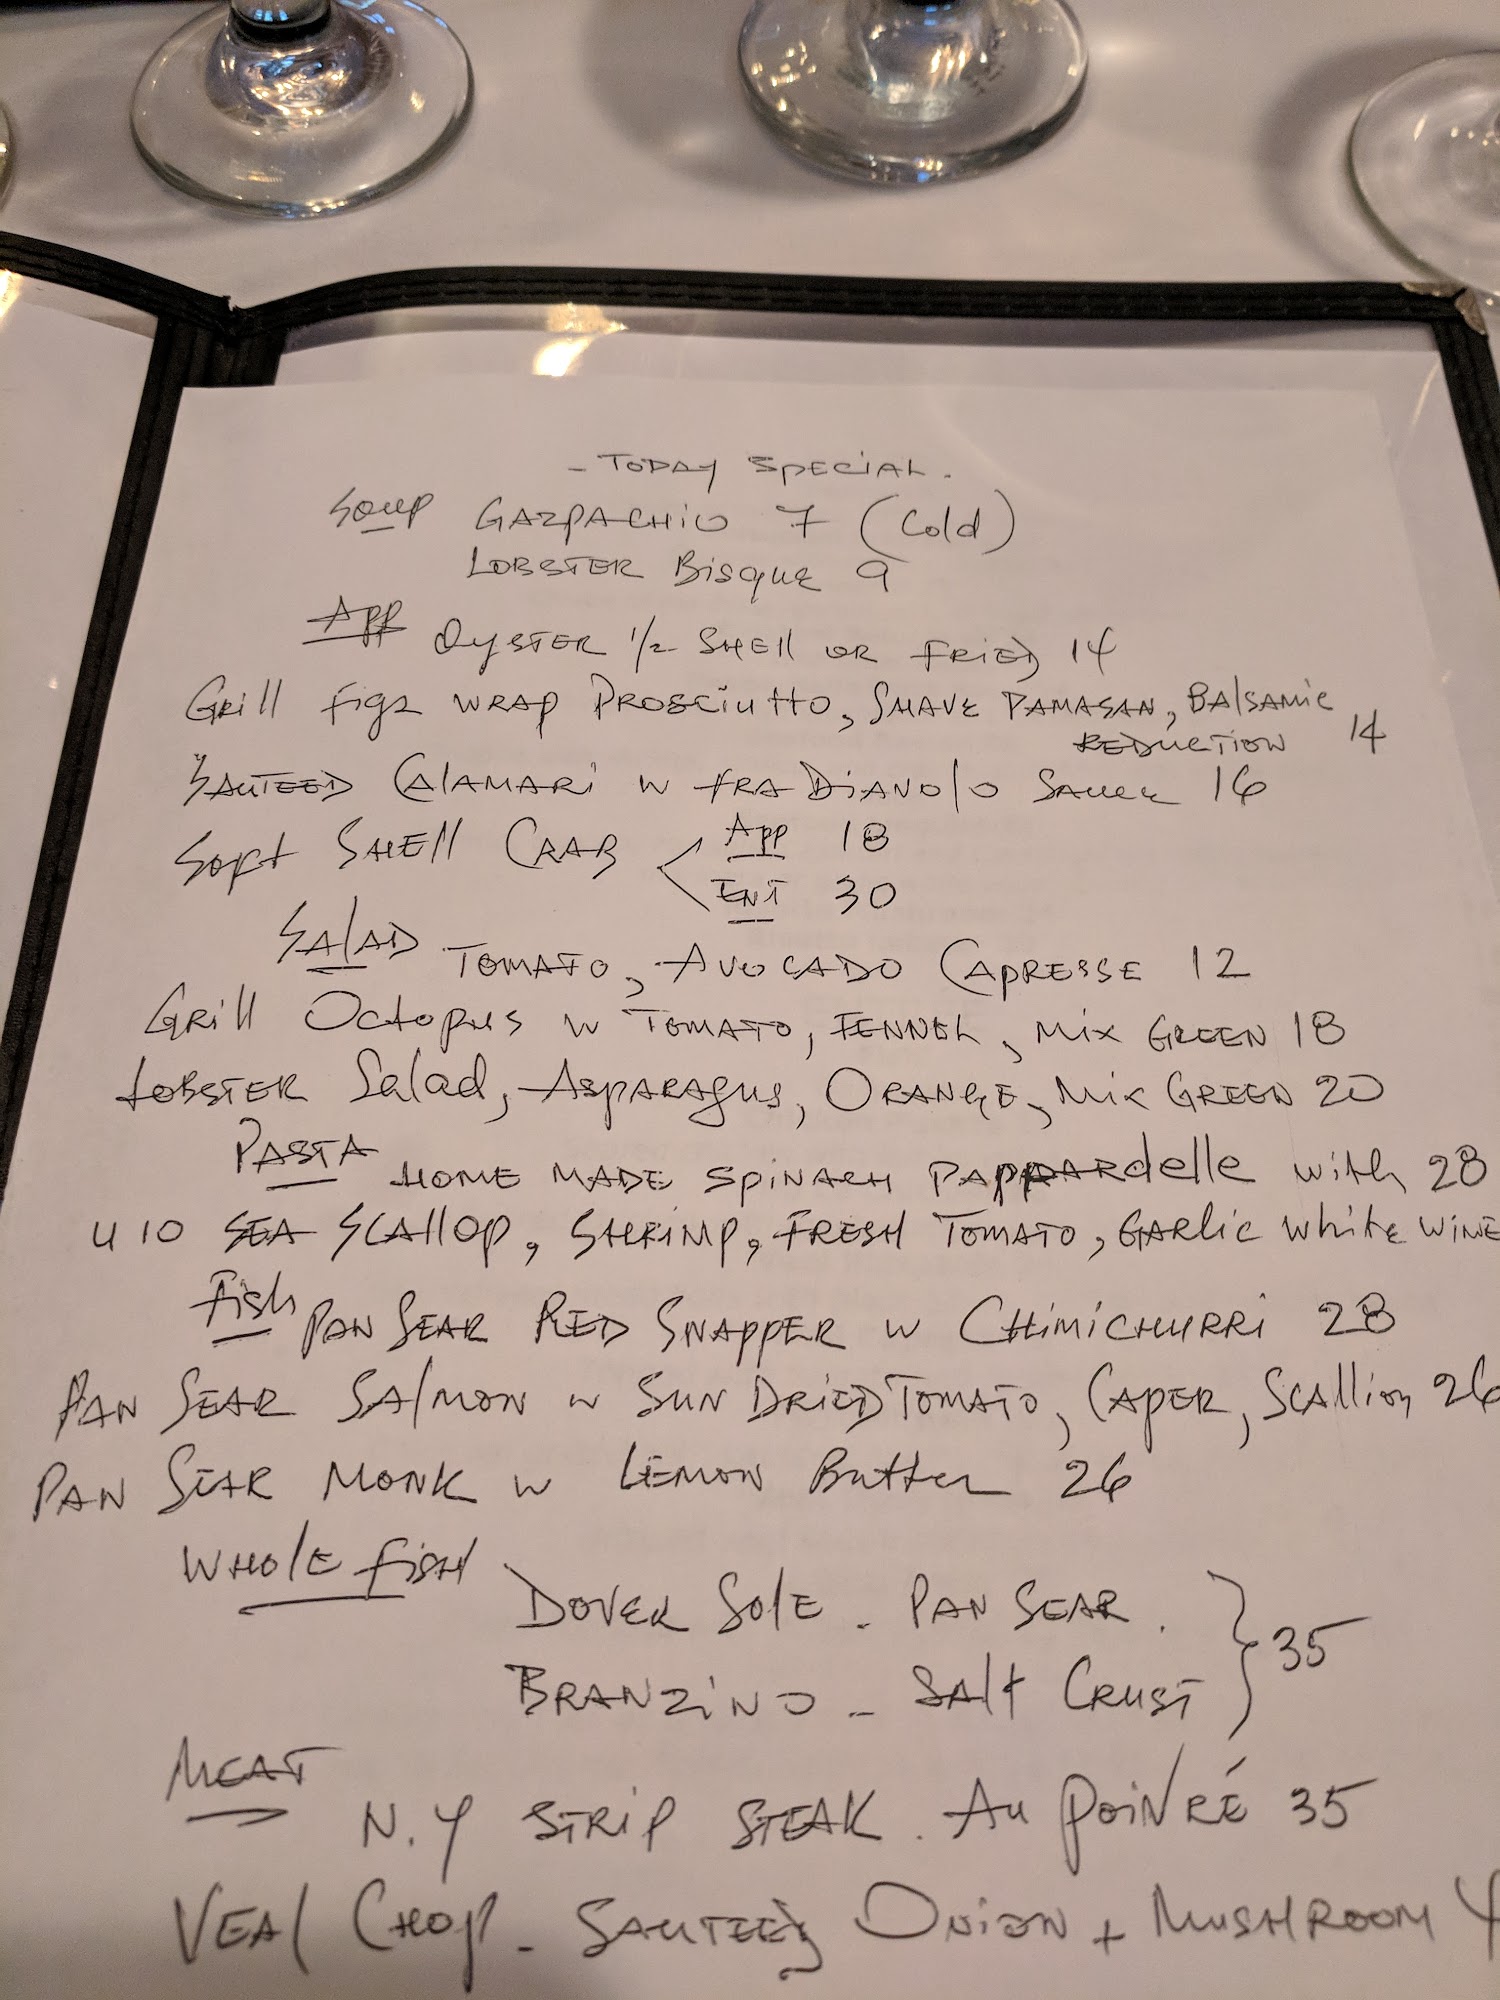 - Today Special.
Soup Gazpachio 7 (Cold)
Lobster Bisque 9
App Oyster 1/2 Shell or Fried 14
Grill Figs wrap Prosciutto, Shave Pamasan, Balsamic
Reduction 14
Sauteed Calamari w fra Dianolo Sauce 16
Soft Shell Crab < App 18
Ent 30
Salad Tomato, Avocado Capresse 12
Grill Octopus w Tomato, Fennel, Mix Green 18
Lobster Salad, Asparagus, Orange, Mix Green 20
Pasta Home Made Spinach Pappardelle with 28
U 10 Sea Scallop, Shrimp, Fresh Tomato, Garlic White Wine
Fish Pan Sear Red Snapper w Chimichurri 28
Pan Sear Salmon w Sun Dried Tomato, Caper, Scallion 26
Pan Sear Monk w Lemon Butter 26
Whole Fish
Dover Sole - Pan Sear. } 35
Branzino - Salt Crust
Meat
N.Y Strip Steak. Au Poivré 35
Veal Chop - Sauteed Onion + Mushroom 4